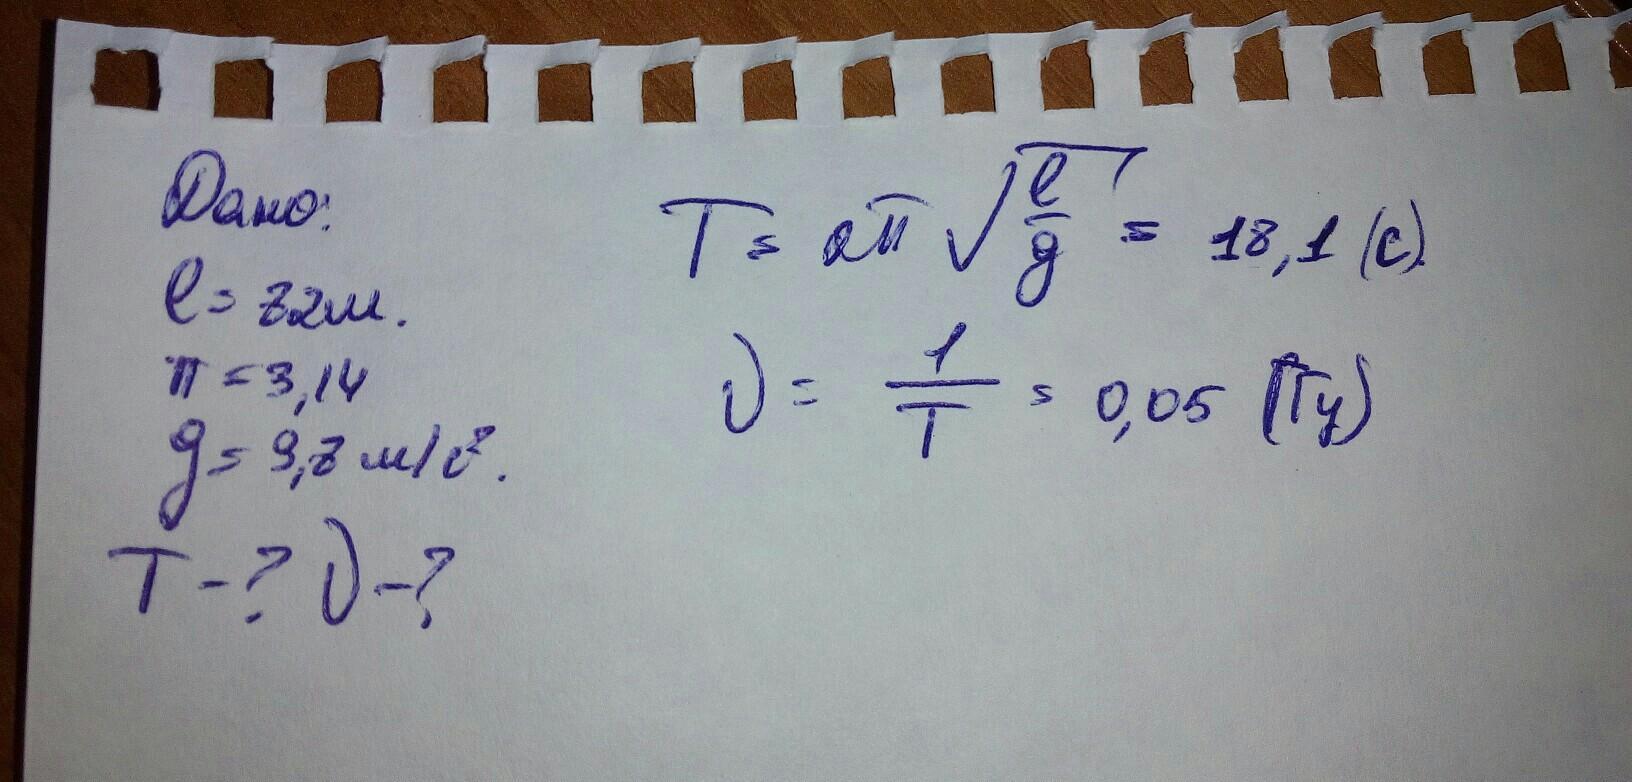 Дано:
l = 82м.
π = 3,14
g = 9,8 м/с².
T - ? ν - ?
T = 2π √(l/g) = 18,1 (с).
ν = 1/T = 0,05 (Гц)